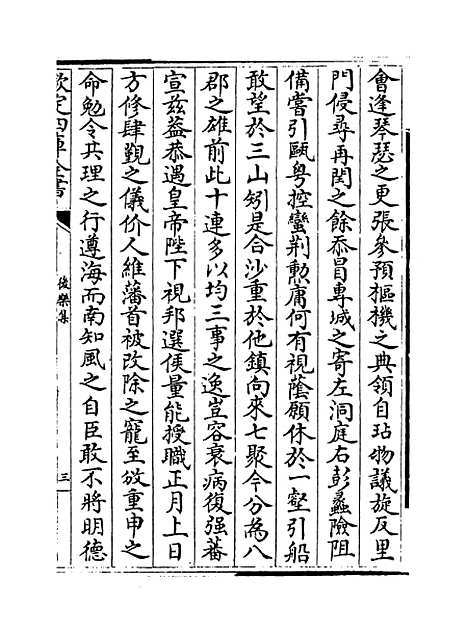 會逢琴瑟之更張參預樞機之典領自玷物議旋反里
門侵尋再閏之餘忝冒專城之寄左洞庭右彭蠡險阻
備嘗引甌粤控蠻荆勲庸何有視蔭願休於一壑引船
敢望於三山矧是合沙重於他鎮向來七聚今分為八
郡之雄前此十連多以均三事之逸豈容衰病復強蕃
宣茲蓋恭遇皇帝陛下視邦選侯量能授職正月上日
方修肆覲之儀价人維藩首被改除之寵至放重申之
命勉令共理之行遵海而南知風之自臣敢不將明德
欽定四庫全書
後樂集
三